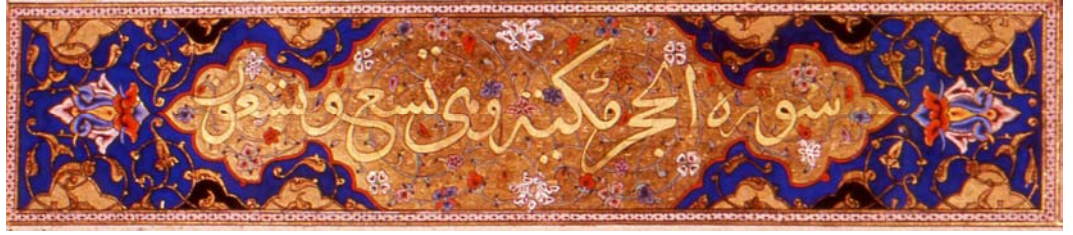 سورة الحجر مكية وهي تسع وتسعون